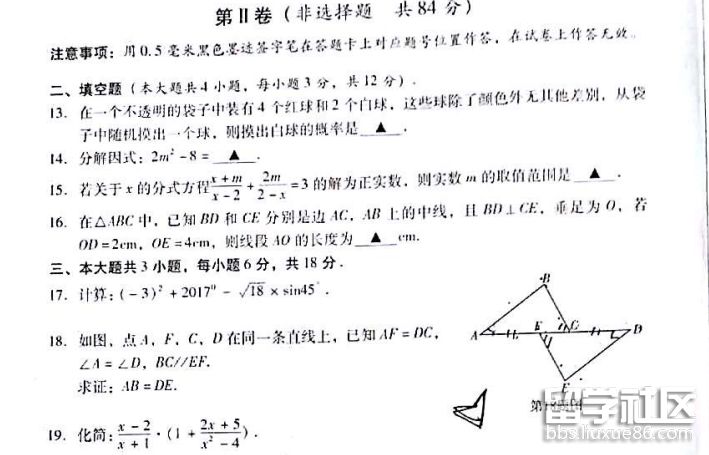 第Ⅱ卷（非选择题 共84分）
注意事项：用0.5毫米黑色墨迹签字笔在答题卡上对应题号位置作答，在试卷上作答无效．
二、填空题（本大题共4小题，每小题3分，共12分）．
13. 在一个不透明的袋子中装有4个红球和2个白球，这些球除了颜色外无其他差别，从袋
子中随机摸出一个球，则摸出白球的概率是 ▲ ．
14. 分解因式：2m² - 8 = ▲ ．
15. 若关于x的分式方程(x+m)/(x-2) + 2m/(2-x) = 3的解为正实数，则实数m的取值范围是 ▲ ．
16. 在△ABC中，已知BD和CE分别是边AC，AB上的中线，且BD⊥CE，垂足为O，若
OD=2cm，OE=4cm，则线段AO的长度为 ▲ cm．
三、本大题共3小题，每小题6分，共18分．
17. 计算：(-3)² + 2017⁰ - √18 × sin45°．
18. 如图，点A，F，C，D在同一条直线上，已知AF=DC，
∠A=∠D，BC//EF．
求证：AB=DE．
B
A
F
C
D
E
第18题图
19. 化简：(x-2)/(x+1) · (1 + (2x+5)/(x²-4))．
留学社区
bbs.liuxue86.com